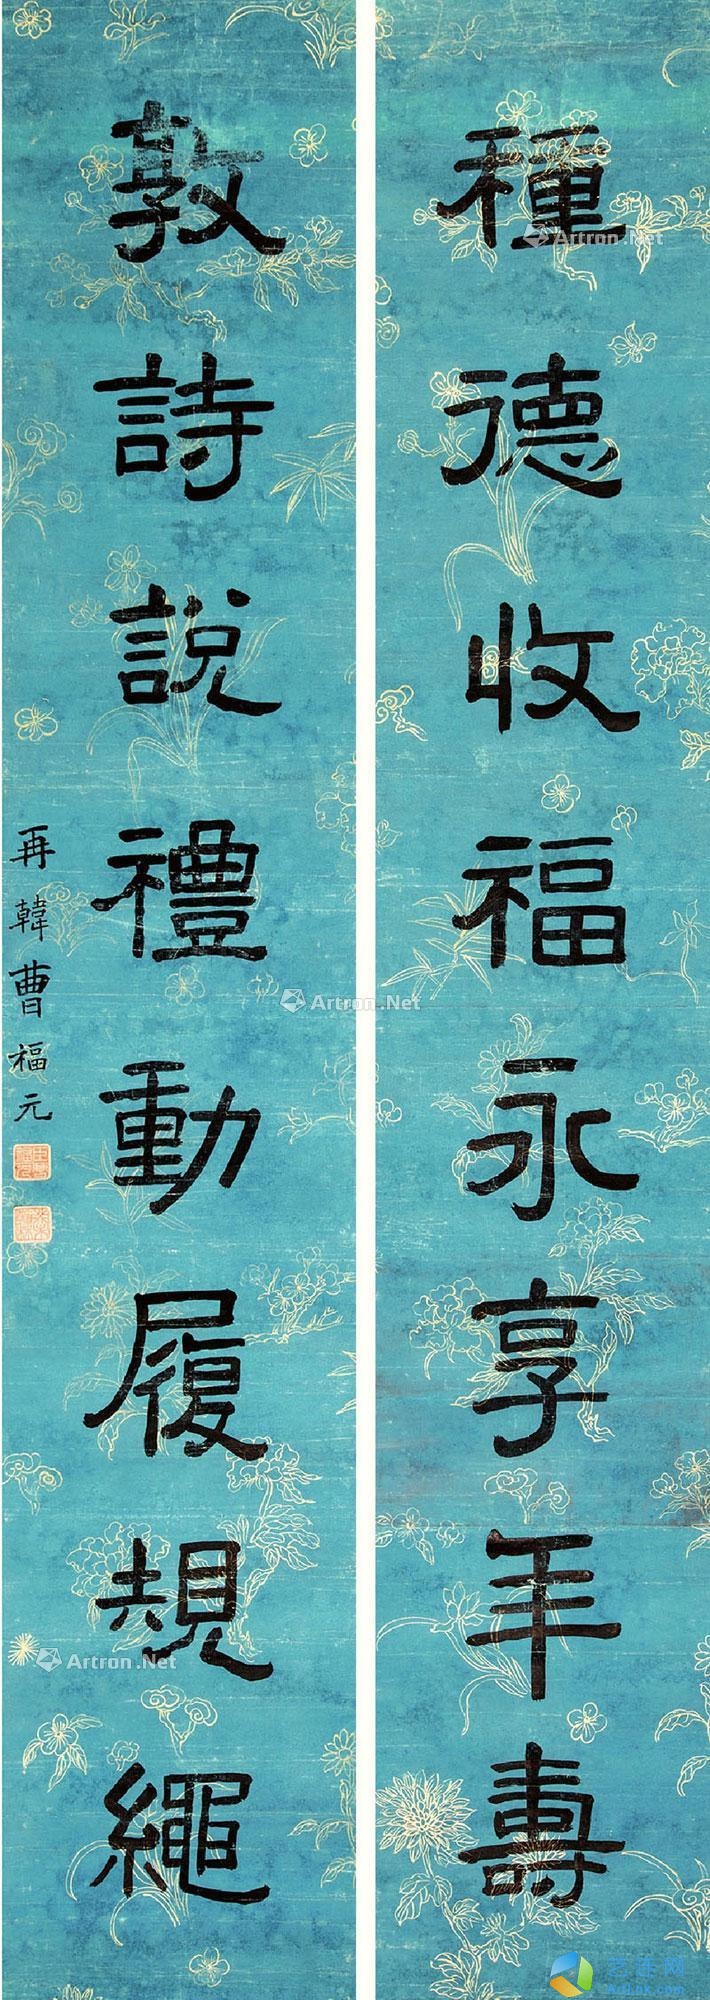 種德收福永享年壽
敦詩說禮動履規繩
再韓曹福元
Artron.Net
Artron.Net
Artron.Net